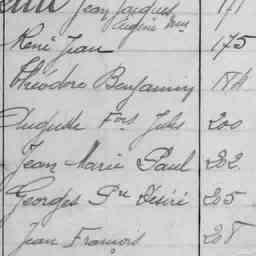 Jean Jacques 171
Eugène Mie
René Jean 175
Théodore Benjamin 184
Auguste Fois Jules 200
Jean Marie Paul 202.
Georges Pre Désiré 205
Jean François 208